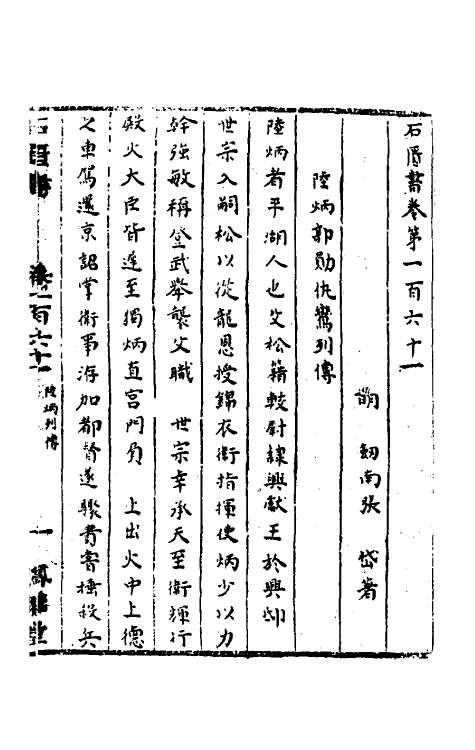 石匱書卷第一百六十一
明 劒南張 岱著
陸炳郭勛仇鸞列傳
陸炳者平湖人也父松籍較尉隷興獻王於興邸
世宗入嗣松以從龍恩授錦衣衛指揮使炳少以力
幹強敏稱登武舉襲父職 世宗幸承天至衛輝行
殿火大臣皆遠至獨炳直宮門負 上出火中上德
之車駕還京詔掌衛事游加都督遂驟貴嘗捶殺兵
石匱書 卷一百六十一 陸炳列傳 一 鳳嬉堂